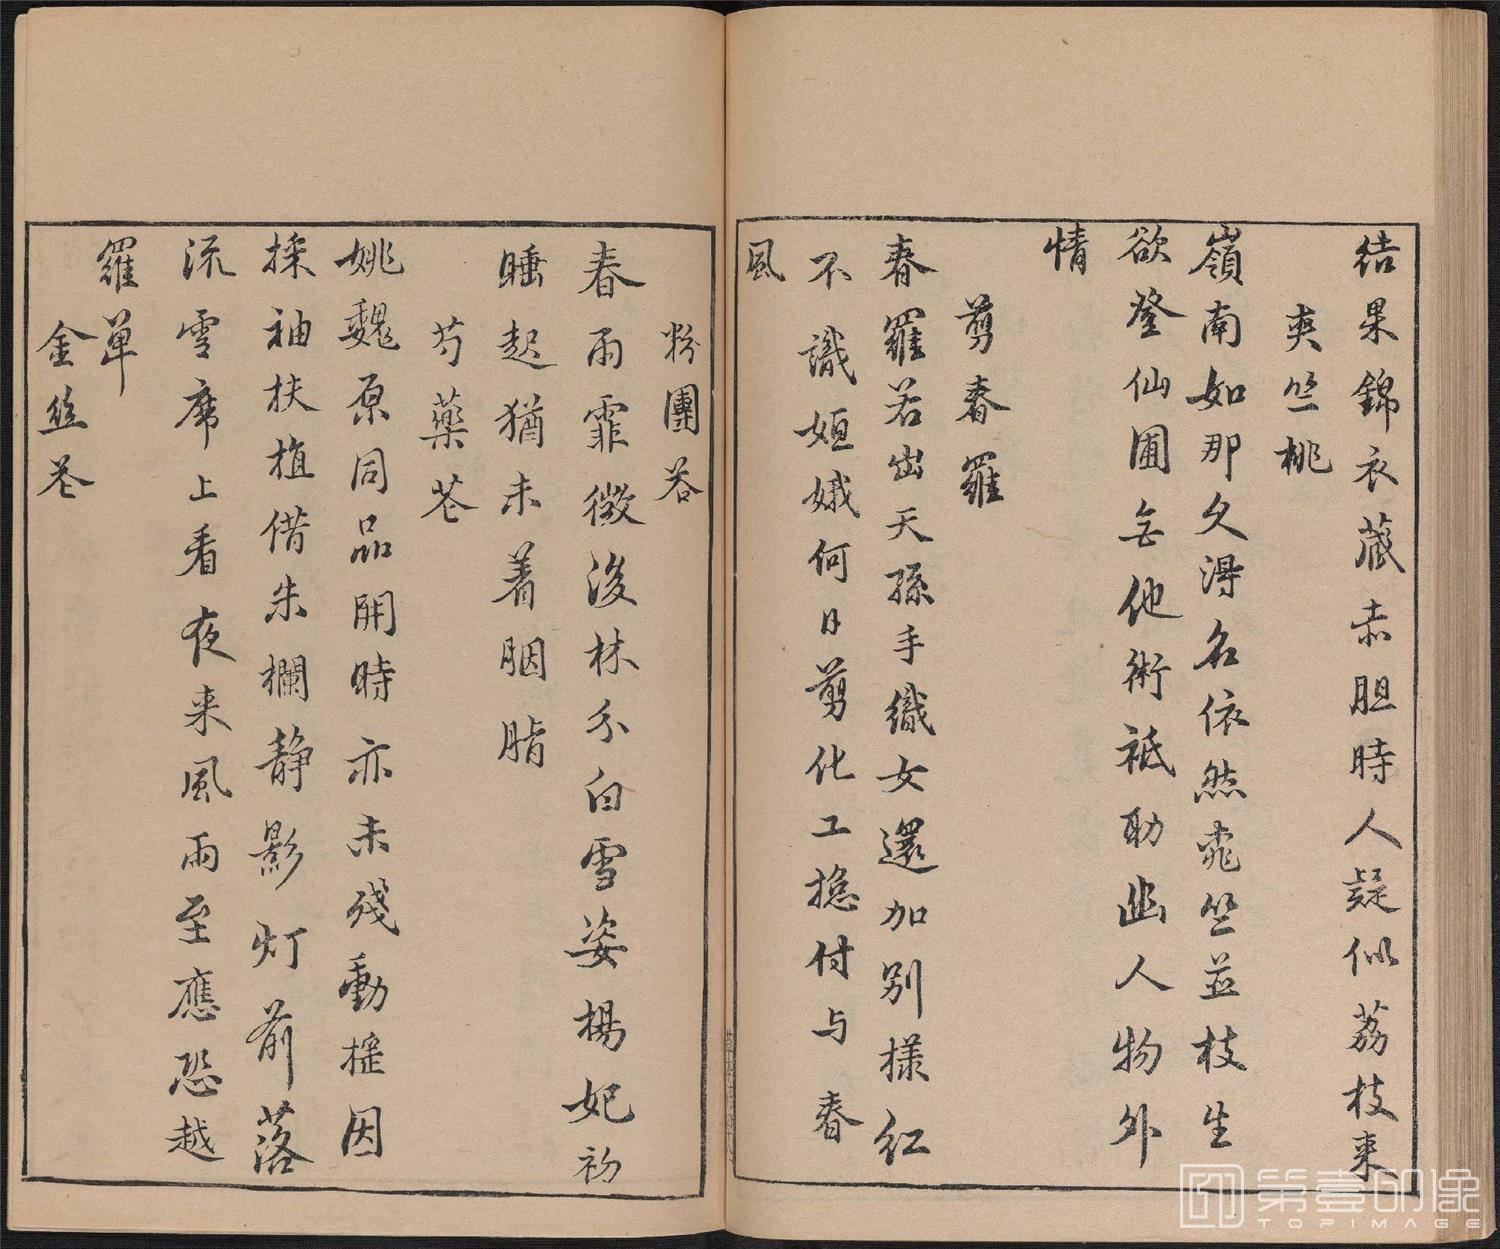 結果錦衣藏赤胆時人疑似荔枝来
夾竺桃
嶺南如那久得名依然竾竺並枝生
欲登仙圃无他術祗助幽人物外
情
剪春羅
春羅若出天孫手織女還加別樣紅
不識姮娥何日剪化工摠付与春
風
粉團苍
春雨霏微後林分白雪姿楊妃初
睡起猶未着胭脂
芍藥苍
姚魏原同品開時亦未殘動搖因
採袖扶植借朱欄靜影灯前落
流雪席上看夜来風雨至應恐越
羅單
金丝苍
第壹印像
TOPIMAGE